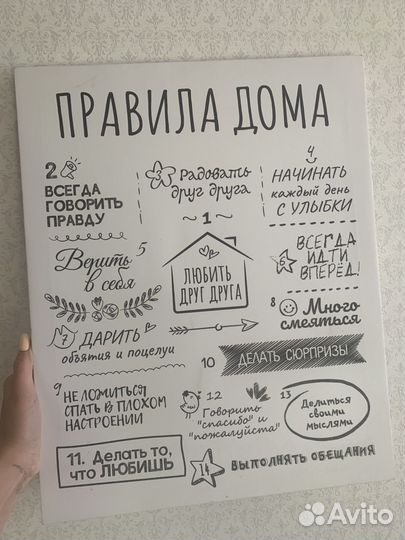 ПРАВИЛА ДОМА
2
ВСЕГДА
ГОВОРИТЬ
ПРАВДУ
3 Радовать
друг друга
4
НАЧИНАТЬ
каждый день
С УЛЫБКИ
~ 1 ~
ЛЮБИТЬ
ДРУГ ДРУГА
5
Верить
в себя
6
ВСЕГДА
ИДТИ
ВПЕРЁД!
7 ДАРИТЬ
объятия и поцелуи
8
Много
смеяться
9
НЕ ЛОЖИТЬСЯ
СПАТЬ В ПЛОХОМ
НАСТРОЕНИИ
10 ДЕЛАТЬ СЮРПРИЗЫ
11. Делать то,
что ЛЮБИШЬ
12
Говорить
"спасибо" и
"пожалуйста"
13
Делиться
своими
мыслями
14 ВЫПОЛНЯТЬ ОБЕЩАНИЯ
Avito